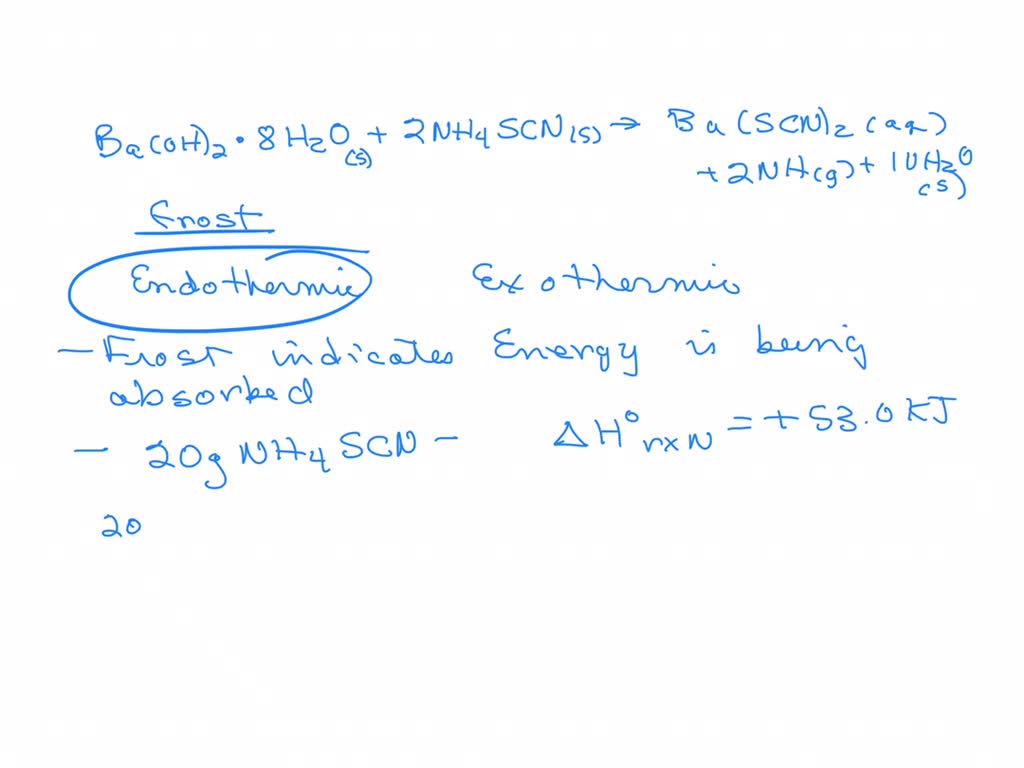 Ba(OH)2 • 8H2O(s) + 2NH4SCN(s) → Ba(SCN)2(aq)
+ 2NH(g) + 10H2O(s)
Frost
Endothermic Exothermic
- Frost indicates Energy is being
absorbed
- 20g NH4SCN - ΔH°rxN = +53.0KJ
20